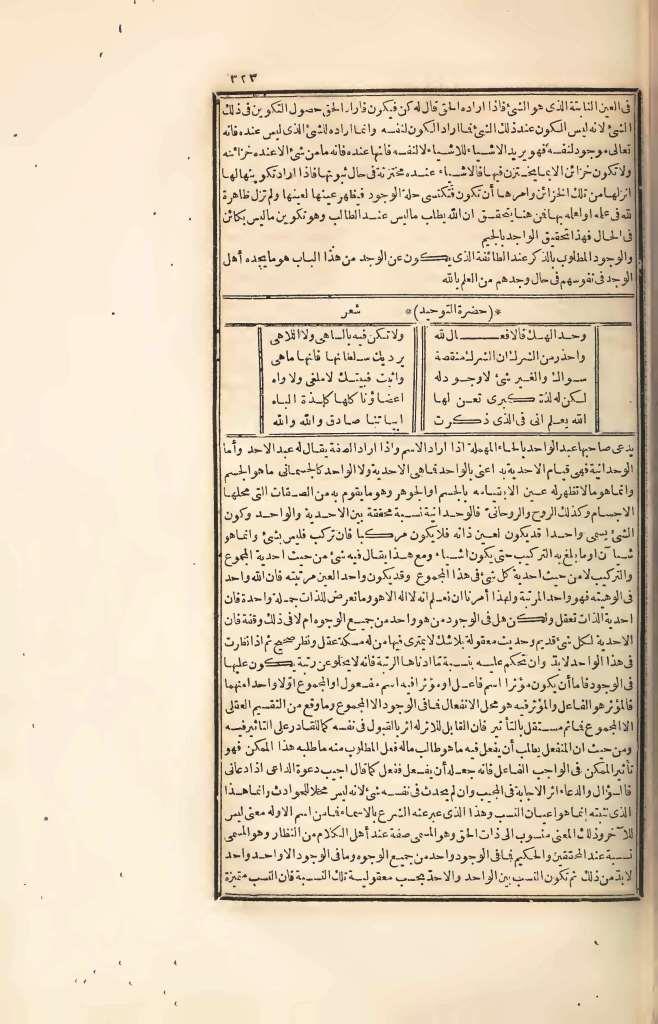 ٣٢٣
في العين الثابتة الذي هو الشئ فاذا اراده الحق قال له كن فيكون فاراد الحق حصول التكوين في ذلك
الشئ لانه ليس الكون عند ذلك الشئ فما اراد الكون لنفسه وانما اراده للشئ الذي ليس عنده فانه
تعالى موجود لنفسه فهو يريد الاشياء للاشياء لا لنفسه فانها عنده فانه ما من شئ الا عنده خزائنه
ولا تكون خزائن الا بما يختزن فيها فالاشياء عنده مختزنة في حال ثبوتها فاذا اراد تكوينها لها
انزلها من تلك الخزائن وامرها أن تكون فتكتسى حلة الوجود فيظهر عينها لعينها ولم تزل ظاهرة
لله في علمه او لعلمه بها فمن هنا يتحقق ان الله يطلب ما ليس عند الطالب وهو تكوين ما ليس بكائن
في الحال فهذا تحقيق الواجد بالجيم
والوجود المطلوب بالذكر عند الطائفة الذي يكون عن الوجد من هذا الباب هو ما يجده أهل
الوجد في نفوسهم في حال وجدهم من العلم بالله
*(حضرة التوحيد)* شعر
وحد الهك فالافعال لله ولا تكن فيه بالساهى ولا اللاهى
واحذر من الشرك ان الشرك منقصة يرديك سلطانها فانها ماهى
سواك والغير شئ لا وجود له واثبت فبيتك لا ملغى ولا واه
لكن له لذة كبرى تعن لها اعضاؤنا كلها كلذة الباه
الله يعلم انى فى الذى ذكرت ابياتنا صادق والله والله
يدعى صاحبها عبد الواحد بالحاء المهملة اذا اراد الاسم واذا اراد الصفة يقال له عبد الاحد وأما
الوحدانية فهى قيام الاحدية به اعنى بالواحد فما هى الاحدية ولا الواحد كالجسمانى ما هو الجسم
وانما هو ما لا تظهر له عين الا بقيامه بالجسم او الجوهر وهو ما يقوم به من الصفات التى محلها
الاجسام وكذلك الروح والروحانى فالوحدانية نسبة محققة بين الاحدية والواحد وكون
الشئ يسمى واحدا قد يكون لعين ذاته فلا يكون مركبا فان تركب فليس بشئ وانما هو
شيا ن او ما بلغ به التركيب حتى يكون اشياء ومع هذا يقال فيه شئ من حيث احدية المجموع
والتركيب لا من حيث احدية كل شئ في هذا المجموع وقد يكون واحد العين مرتبته فان الله واحد
في الوهيته فهو واحد المرتبة ولهذا أمرنا ان نعلم انه لا اله الا هو وما تعرض للذات جملة واحدة فان
احدية الذات تعقل ولكن هل في الوجود من هو واحد من جميع الوجوه ام لا في ذلك وقفة فان
الاحدية لكل شئ قديم وحديث معقولة بلا شك لا يمترى فيها من له مسكة عقل ونظر صحيح ثم اذا نظرت
في هذا الواحد لا بد وان تحكم عليه بنسبة ما ادناها الرتبة فانه لا يخلو عن رتبة يكون عليها
في الوجود فاما أن يكون مؤثرا اسم فاعل او مؤثرا فيه اسم مفعول او المجموع او لا واحد امنهما
فالمؤثر هو الفاعل والمؤثر فيه هو محل الانفعال فما في الوجود الا المجموع وما وقع من التقسيم العقلى
الا المجموع فما ثم مستقل بالتأثير فان القابل للاثر له اثر بالقبول في نفسه كما للقادر على التاثير فيه
ومن حيث ان المنفعل يطلب أن يفعل فيه ما هو طالب ما له ففعل المطلوب منه ما طلبه هذا الممكن فهو
تأثير الممكن في الواجب الفاعل فانه جعله أن يفعل ففعل كما قال اجيب دعوة الداعى اذا دعانى
فالسؤال والدعاء اثر الاجابة في المجيب وان لم يحدث في نفسه شئ لانه ليس محلا للحوادث وانما هذا
الذى نثبته انما هو اعيان النسب وهذا الذى عبر عنه الشرع بالاسماء فما من اسم الا وله معنى ليس
للآخر وذلك المعنى منسوب الى ذات الحق وهو المسمى صفة عند أهل الكلام من النظار وهو المسمى
نسبة عند المحققين والحكيم فما في الوجود واحد من جميع الوجوه وما في الوجود الا واحد واحد
لا بد من ذلك ثم تكون النسب بين الواحد والاحد بحسب معقولية تلك النسبة فان النسب متميزة